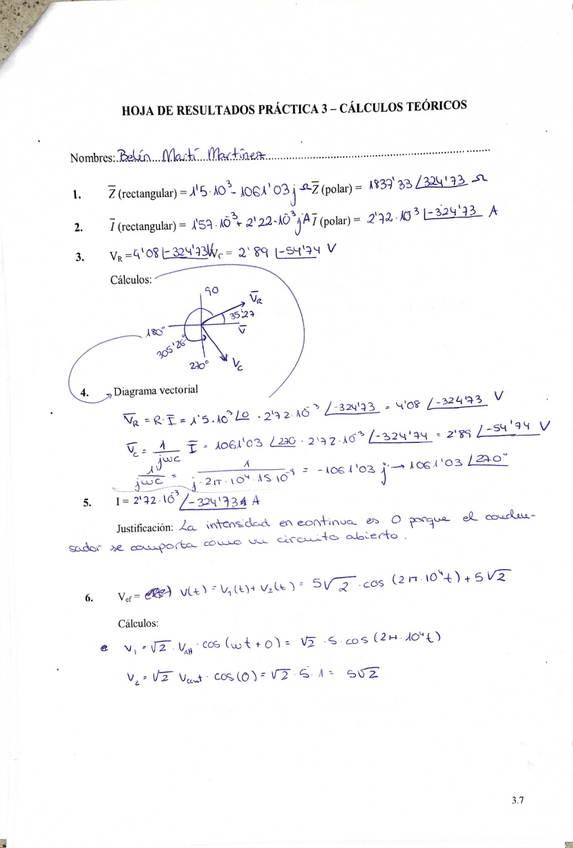 HOJA DE RESULTADOS PRÁCTICA 3 – CÁLCULOS TEÓRICOS
Nombres: Belén Martí Martínez
1. Z̅ (rectangular) = 1'5·10³ - 1061'03 j Ω Z̅ (polar) = 1837'33 ∠324'73 Ω
2. I̅ (rectangular) = 1'57·10⁻³ + 2'22·10⁻³ j A I̅ (polar) = 2'72·10⁻³ ∠-324'73 A
3. V_R = 4'08 ∠-324'73 V V_C = 2'89 ∠-54'74 V
Cálculos:
90
V̅_R
35'27
180°
V̅
305'26°
270°
V̅_C
4. Diagrama vectorial
V̅_R = R·I̅ = 1'5·10³ ∠0 · 2'72·10⁻³ ∠-324'73 = 4'08 ∠-324'73 V
V̅_C = 1/jωC I̅ = 1061'03 ∠270 · 2'72·10⁻³ ∠-324'74 = 2'89 ∠-54'74 V
1/jωC = 1/j·2π·10⁴·15·10⁻⁹ = -1061'03 j → 1061'03 ∠270°
5. I = 2'72·10⁻³ ∠-324'73 A
Justificación: La intensidad en continua es 0 porque el conden-
sador se comporta como un circuito abierto.
6. V_ef = V(t) = V₁(t) + V₂(t) = 5√2 · cos (2π·10⁴t) + 5√2
Cálculos:
V₁ = √2 · V_eff · cos (ωt + 0) = √2 · 5 · cos (2π·10⁴t)
V₂ = √2 V_cont · cos (0) = √2 · 5 · 1 = 5√2
3.7